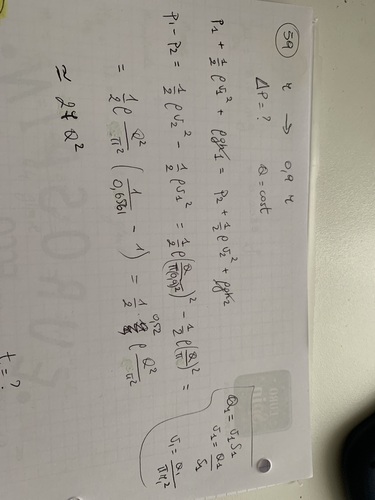 59
r → 0,9 r
ΔP = ? Q = cost
P1 + 1/2 ρ v1² + ρgh1 = P2 + 1/2 ρ v2² + ρgh2
P1 - P2 = 1/2 ρ v2² - 1/2 ρ v1² = 1/2 ρ (Q/(π(0,9)²))² - 1/2 ρ (Q/π)² =
= 1/2 ρ Q²/π² (1/0,6561 - 1) = 1/2 · 0,52 ρ Q²/π²
≃ 27 Q²
Q1 = v1 S1
v1 = Q1/S1
v1 = Q1/(π r1²)
t = ?